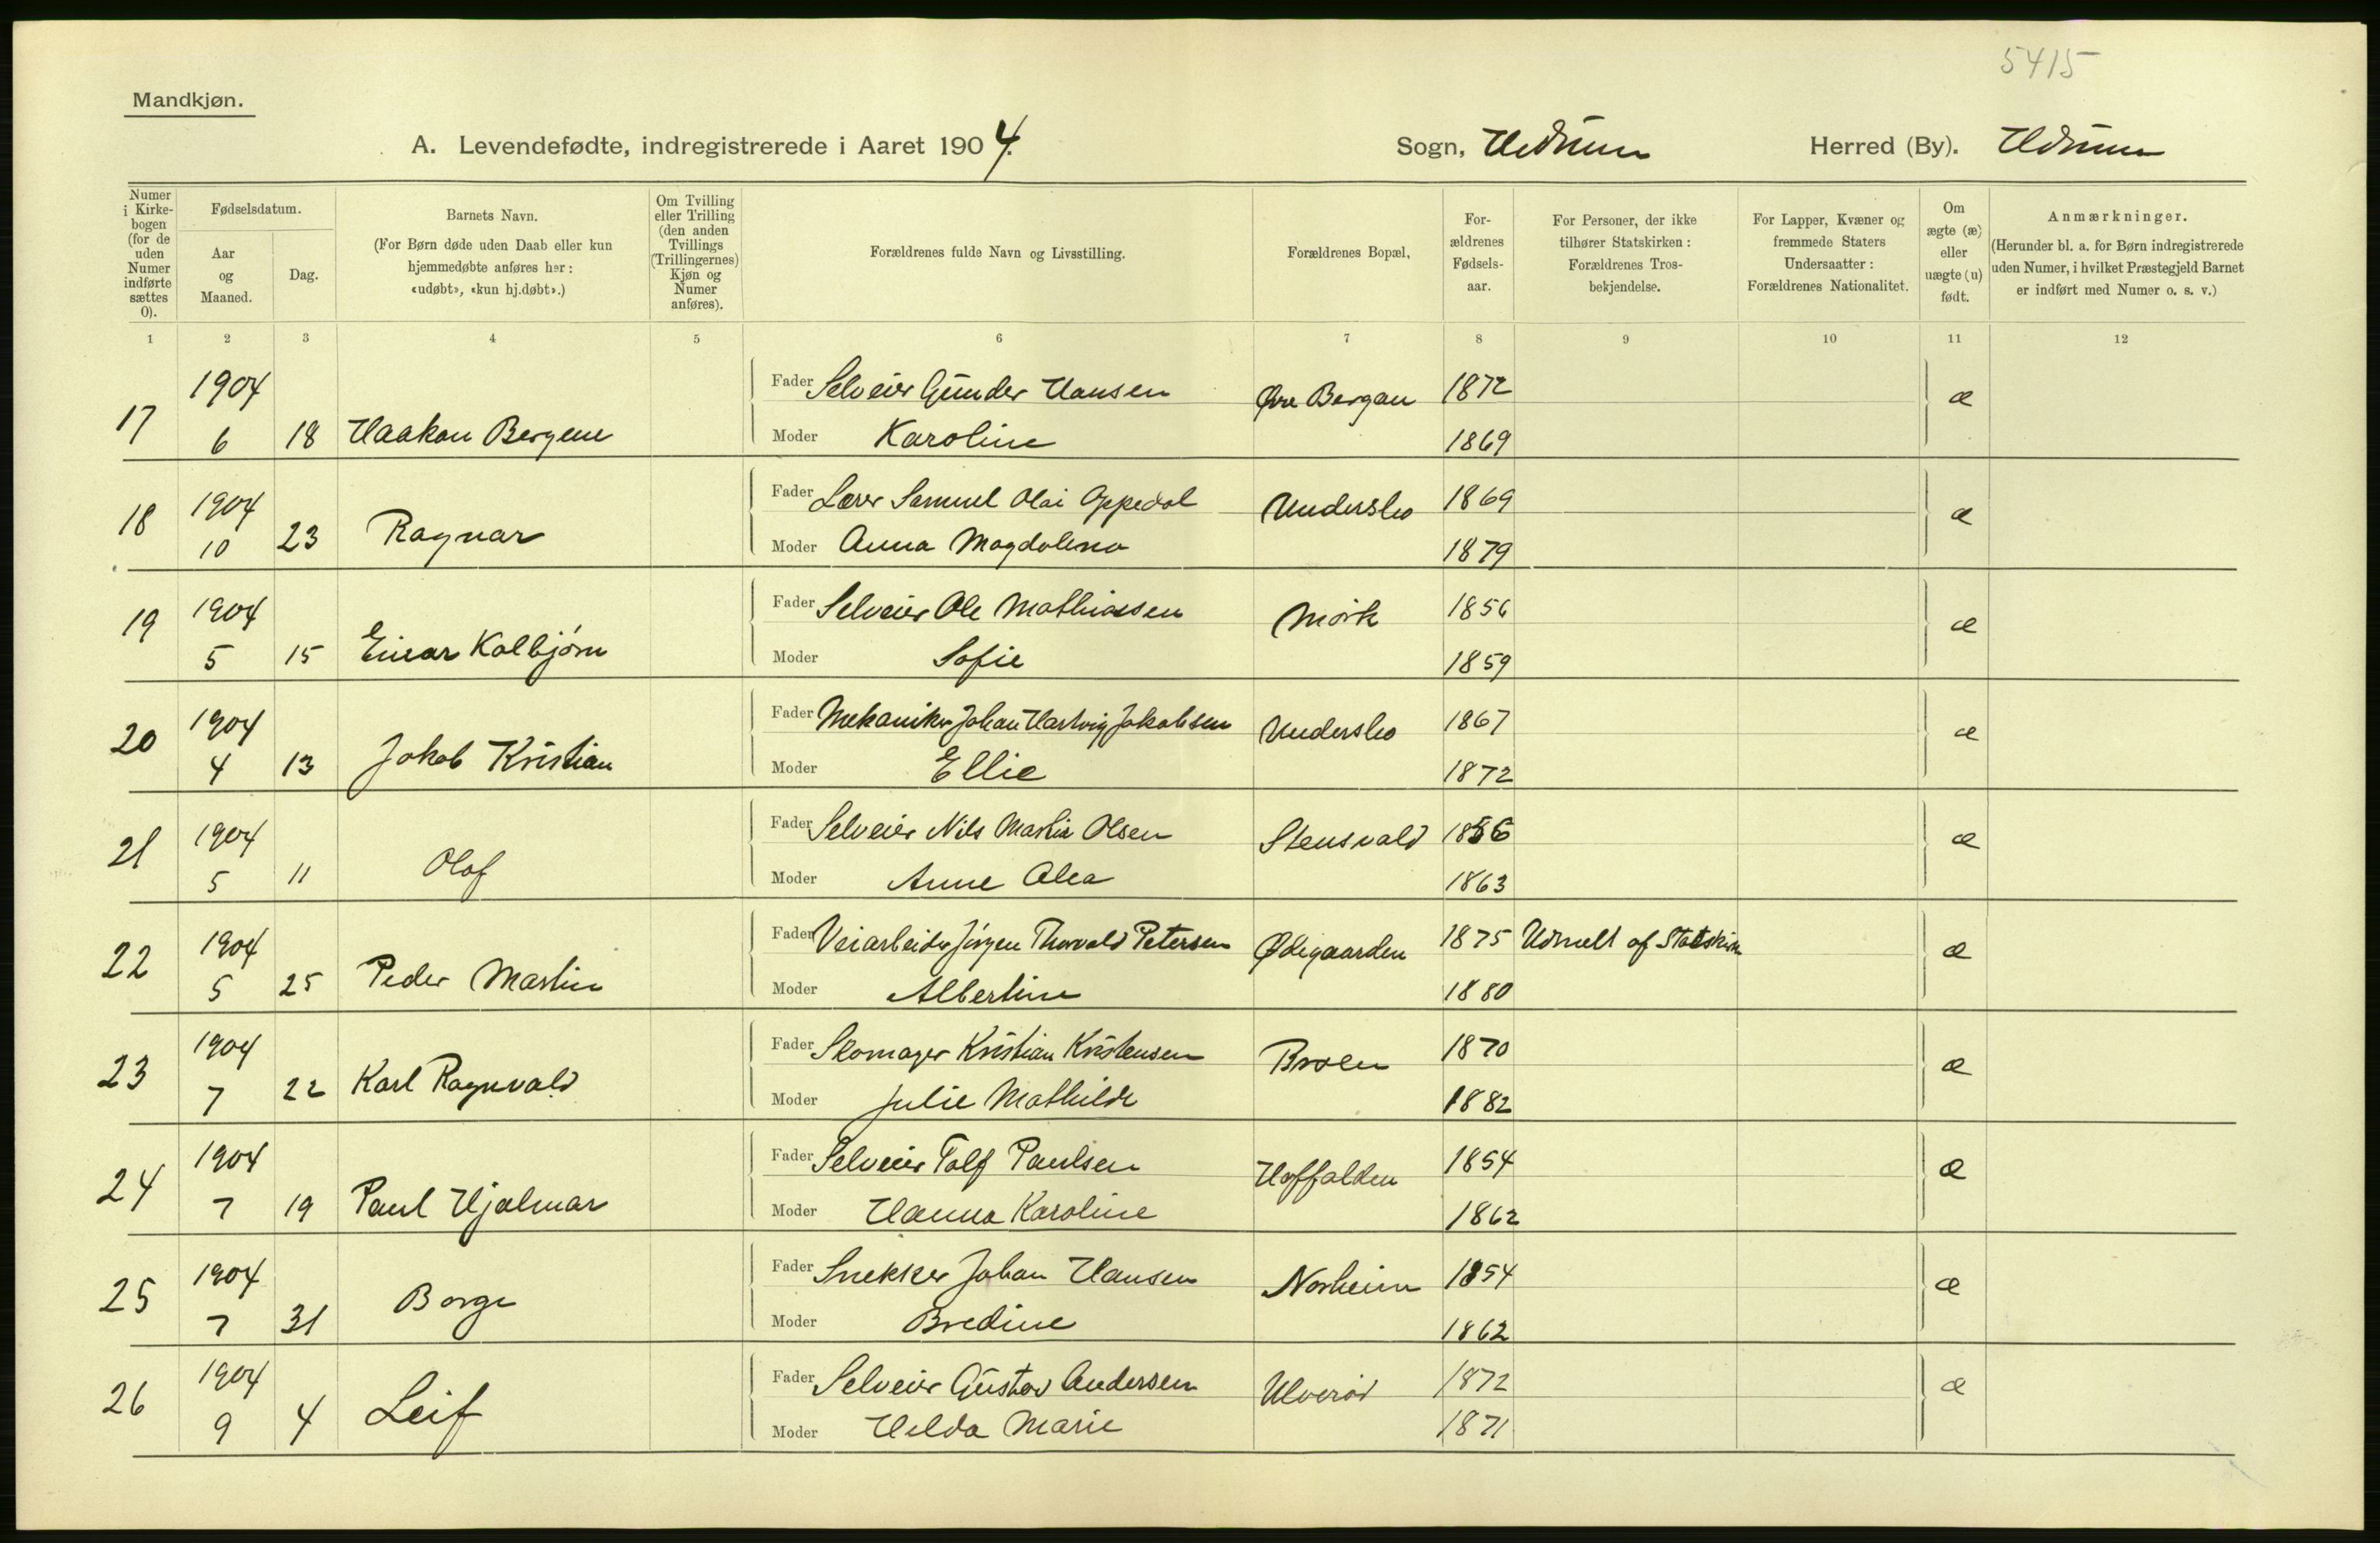 5415
Mandkjøn.
A. Levendefødte, indregistrerede i Aaret 1904. Sogn, Hedrum Herred (By). Hedrum
Numer i Kirkebogen (for de uden Numer indførte sættes 0).
Fødselsdatum.
Aar og Maaned.
Dag.
Barnets Navn.
(For Børn døde uden Daab eller kun hjemmedøbte anføres her: «udøbt», «kun hj.døbt».)
Om Tvilling eller Trilling (den anden Tvillings (Trillingernes) Kjøn og Numer anføres).
Forældrenes fulde Navn og Livsstilling.
Forældrenes Bopæl,
Forældrenes Fødselsaar.
For Personer, der ikke tilhører Statskirken: Forældrenes Trosbekjendelse.
For Lapper, Kvæner og fremmede Staters Undersaatter: Forældrenes Nationalitet.
Om ægte (æ) eller uægte (u) født.
Anmærkninger.
(Herunder bl. a. for Børn indregistrerede uden Numer, i hvilket Præstegjeld Barnet er indført med Numer o. s. v.)
1 2 3 4 5 6 7 8 9 10 11 12
1904 Fader Selveier Gunder Hansen Øvre Bergan 1872 æ
17 6 18 Haakon Bergene Moder Karoline 1869
1904 Fader Lærer Samuel Olai Oppedal Undersbo 1869 æ
18 10 23 Ragnar Moder Anna Magdalena 1879
1904 Fader Selveier Ole Mathiassen Mørk 1856 æ
19 5 15 Einar Kolbjørn Moder Sofie 1859
1904 Fader Mekaniker Johan Hartvig Jakobsen Undersbo 1867 æ
20 4 13 Jakob Kristian Moder Ellie 1872
1904 Fader Selveier Nils Martin Olsen Stensvald 1856 æ
21 5 11 Olaf Moder Anne Olea 1863
1904 Fader Veiarbeider Jørgen Thorvald Petersen Ødegaarden 1875 Udmeldt af Statskirken æ
22 5 25 Peder Martin Moder Albertine 1880
1904 Fader Skomager Kristian Kristensen Broen 1870 æ
23 7 22 Karl Ragnvald Moder Julie Mathilde 1882
1904 Fader Selveier Tolf Paulsen Hoffalden 1854 æ
24 7 19 Paul Hjalmar Moder Hanna Karoline 1862
1904 Fader Snekker Johan Hansen Norheim 1854 æ
25 7 31 Borge Moder Bredine 1862
1904 Fader Selveier Gustav Andersen Ulverød 1872 æ
26 9 4 Leif Moder Helda Marie 1871